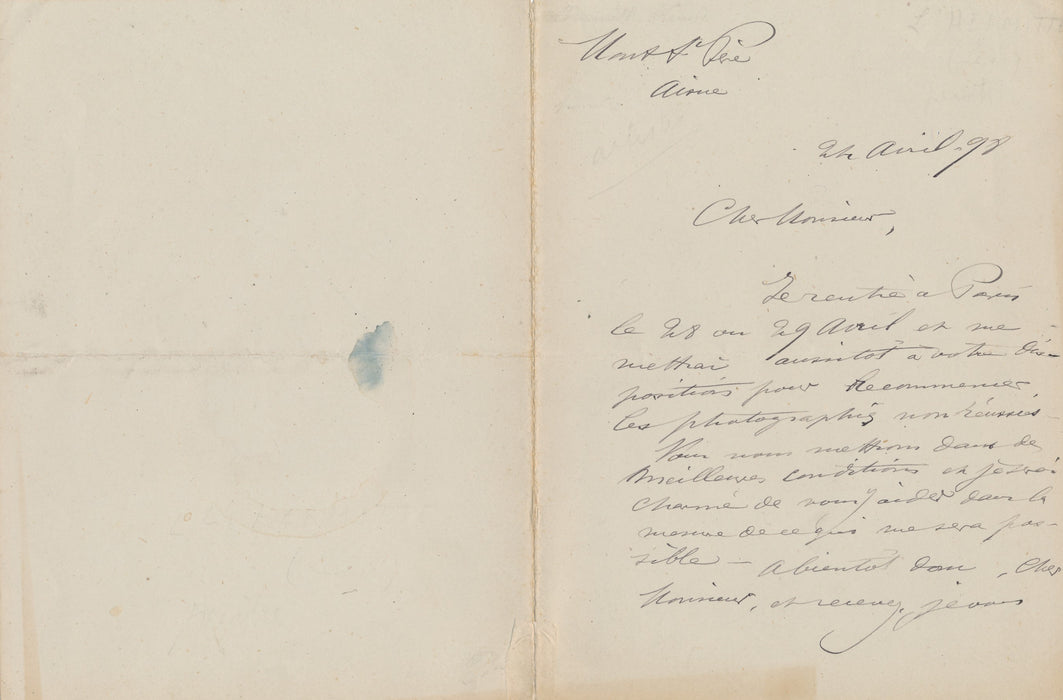 Mont St Père
Aisne
24 Avril - 98
Cher Monsieur,
Je rentre à Paris
le 28 ou 29 Avril et me
mettrai aussitôt à votre dis-
position pour Recommencer
les photographies non réussies.
nous mettrons dans de
meilleures conditions et je serai
charmé de vous y aider dans la
mesure de ce qui me sera pos-
sible - A bientôt donc, Cher
Monsieur, et recevez, je vous